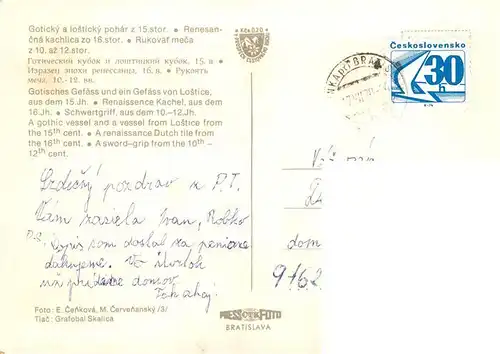 Gotický a loštický pohár z 15.stor. • Renesan-
čná kachlica zo 16.stor. • Rukoväť meča
z 10. až 12.stor.
Готический кубок и лоштицкий кубок. 15. в •
Изразец эпохи ренессанца. 16. в. • Рукоять
меча. 10.-12. вв.
Gotisches Gefäss und ein Gefäss von Loštice,
aus dem 15.Jh. • Renaissance Kachel, aus dem
16.Jh. • Schwertgriff, aus dem 10.–12.Jh.
A gothic vessel and a vessel from Loštice from
the 15th cent. • A renaissance Dutch tile from
the 16th cent. • A sword-grip from the 10th –
12th cent.
Srdečný pozdrav z P.T.
Vám zasiela Ivan, Robko
P.S. Dopis som dostal za peniaze
ďakujeme. Vo štvrtok
už prídeme domov
Foto: E. Čeňková, M. Červeňanský /3/
Tlač: Grafobal Skalica
Kčs 0,30
PRESSFOTO
BRATISLAVA
Československo
30
h
dom
9162